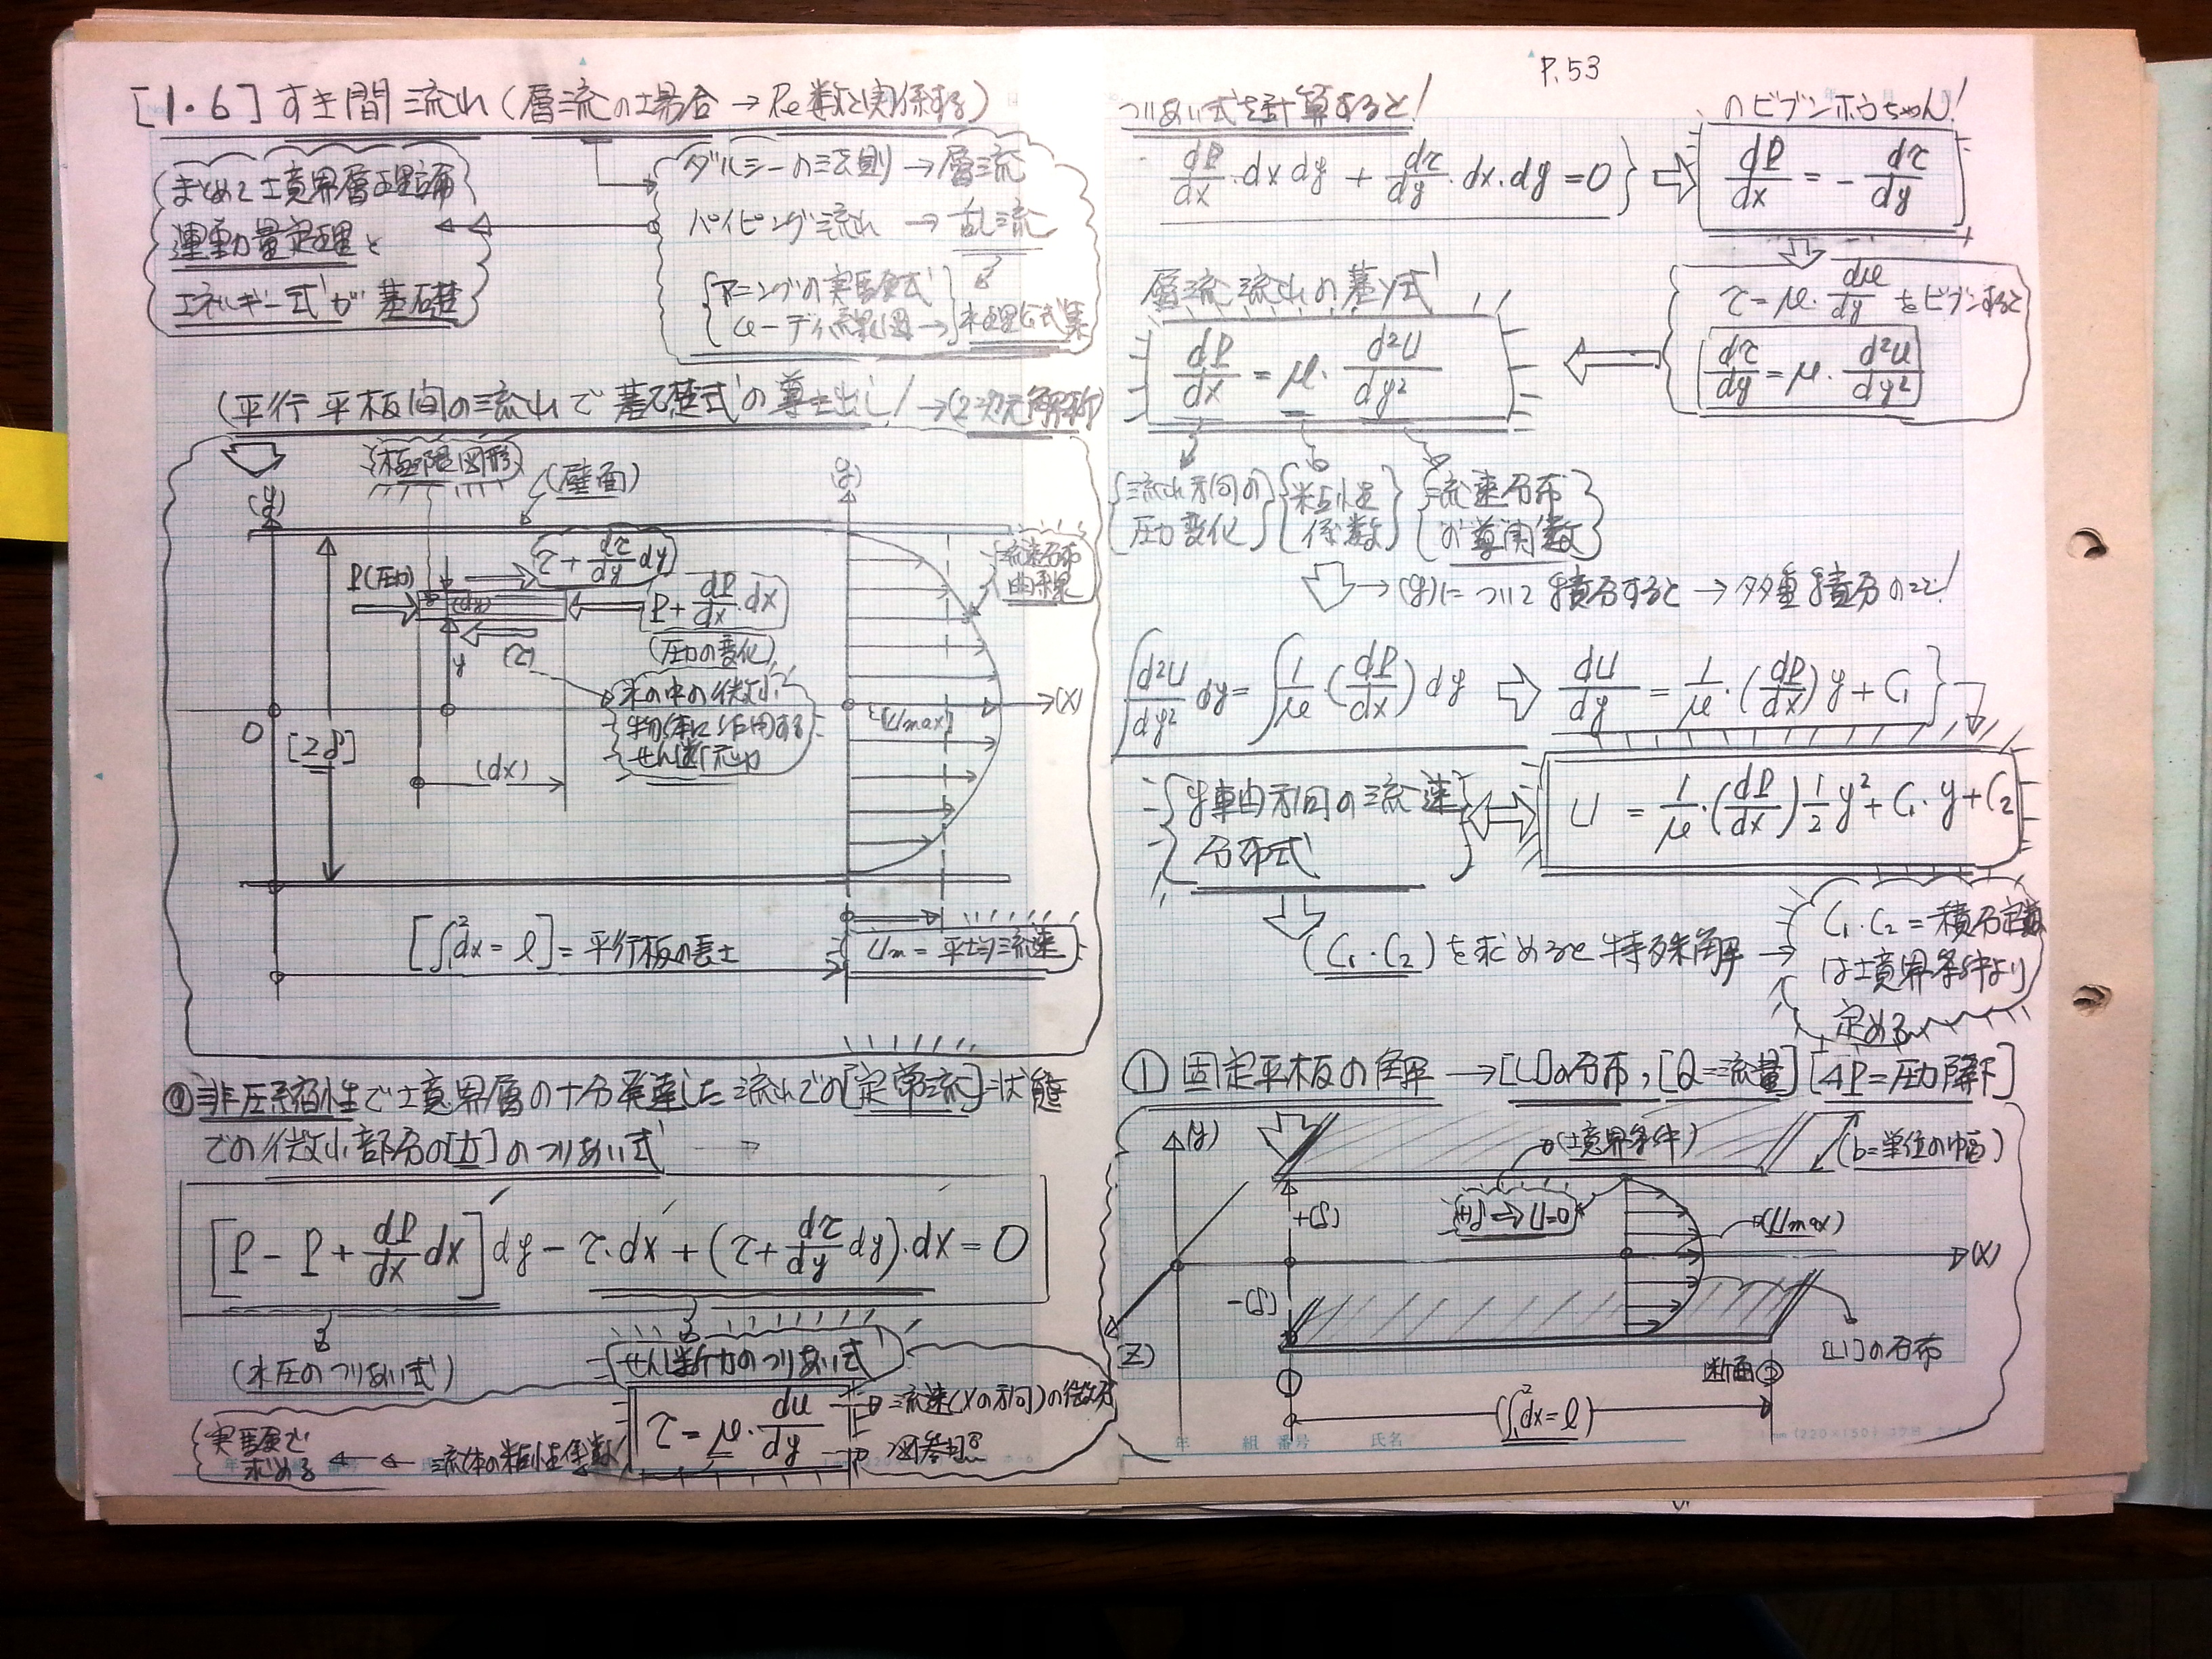 [1・6] すき間流れ (層流の場合 → Re数と関係する)
まとめて境界層理論
運動量定理と
エネルギー式が基礎
ダルシーの法則 → 層流
パイピング流れ → 乱流
マニングの実験式
ムーディ線図 → 水理公式集
(平行平板間の流れで基礎式の導き出し! → (2次元解析)
(極限図形)
(壁面)
(y)
(y)
P(圧力)
τ + dτ/dy dy
P + dP/dx・dx
(圧力の変化)
(dy)
(τ)
y
流速分布
曲線
水の中の微小
物体に作用する
せん断応力
0
[2δ]
(Umax)
(X)
(dx)
[∫₁²dx = ℓ] = 平行板の長さ
Um = 平均流速
◎非圧縮性で境界層の十分発達した流れでの[定常流]状態
での微小部分の[力]のつりあい式
[P − P + dP/dx dx] dy − τ・dx + (τ + dτ/dy dy)・dx = 0
(水圧のつりあい式)
せん断力のつりあい式
τ = μ・du/dy
流速(Xの方向)の微分
図参照
実験で
求める
流体の粘性係数
P.53
つりあい式を計算すると!
dP/dx・dx dy + dτ/dy・dx・dy = 0
のビブンホウちゃん!
dP/dx = − dτ/dy
τ = μ・du/dy をビブンすると
dτ/dy = μ・d²U/dy²
層流流れの基イ式
dP/dx = μ・d²U/dy²
流れ方向の
圧力変化
粘性
係数
流速分布
の導関数
→ (y)について積分すると → 多重積分のこと!
∫d²U/dy² dy = ∫1/μ・(dP/dx) dy ⇨ dU/dy = 1/μ・(dP/dx) y + C₁
y軸方向の流速
分布式
U = 1/μ・(dP/dx) 1/2 y² + C₁・y + C₂
(C₁・C₂)を求めると特殊解 →
C₁・C₂ = 積分定数
は境界条件より
定める
① 固定平板の解 → [U]の分布, [Q=流量] [ΔP=圧力降下]
(y)
(境界条件)
(b=単位の幅)
+(δ)
+δ ⇒ U=0
(Umax)
(X)
−(δ)
(Z)
[U]の分布
断面②
①
(∫₁²dx = ℓ)
年 組 番号 氏名